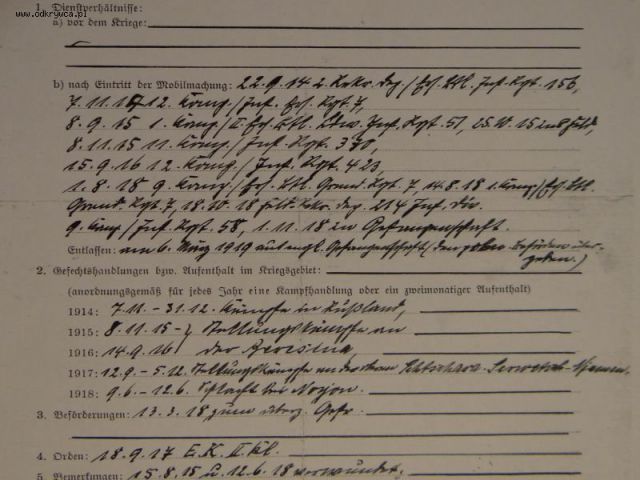 www.odkrywca.pl
1. Dienstverhältnisse:
a) vor dem Kriege:
b) nach Eintritt der Mobilmachung: 22.9.14 2. Rekr. Dep./Ers. Btl. Inf. Rgt. 156,
7.11. 12. Komp./Inf. Rgt. 7,
8.9.15 1. Komp./II. Ers. Btl. Ldw. Inf. Rgt. 51, 25.10.15 ins Feld,
8.11.15 11. Komp./Inf. Rgt. 370,
15.9.16 12. Komp./Inf. Rgt. 423
1.8.18 9. Komp./Ers. Btl. Grend. Rgt. 7, 14.8.18 1. Komp./Ers. Btl.
Grend. Rgt. 7, 18.10.18 Feld Rekr. Dep. 214 Inf. Div.
9. Komp./Inf. Rgt. 58, 1.11.18 in Gefangenschaft.
Entlassen: am 6. März 1919 aus engl. Gefangenschaft (den Behörden über-
geben.)
2. Gefechtshandlungen bzw. Aufenthalt im Kriegsgebiet:
(anordnungsgemäß für jedes Jahr eine Kampfhandlung oder ein zweimonatiger Aufenthalt)
1914: 7.11. - 31.12. Kämpfe in Rußland,
1915: 8.11.15 - } Stellungskämpfe an
1916: 14.9.16 der Beresina,
1917: 12.9. - 5.12. Stellungskämpfe an der oberen Schtschara-Serwetsch-Njemen.
1918: 9.6. - 12.6. Schlacht bei Noyon.
3. Beförderungen: 13.3.18 zum überz. Gefr.
4. Orden: 18.9.17 E.K. II Kl.
5. Bemerkungen: 15.8.15 u. 12.6.18 verwundet.